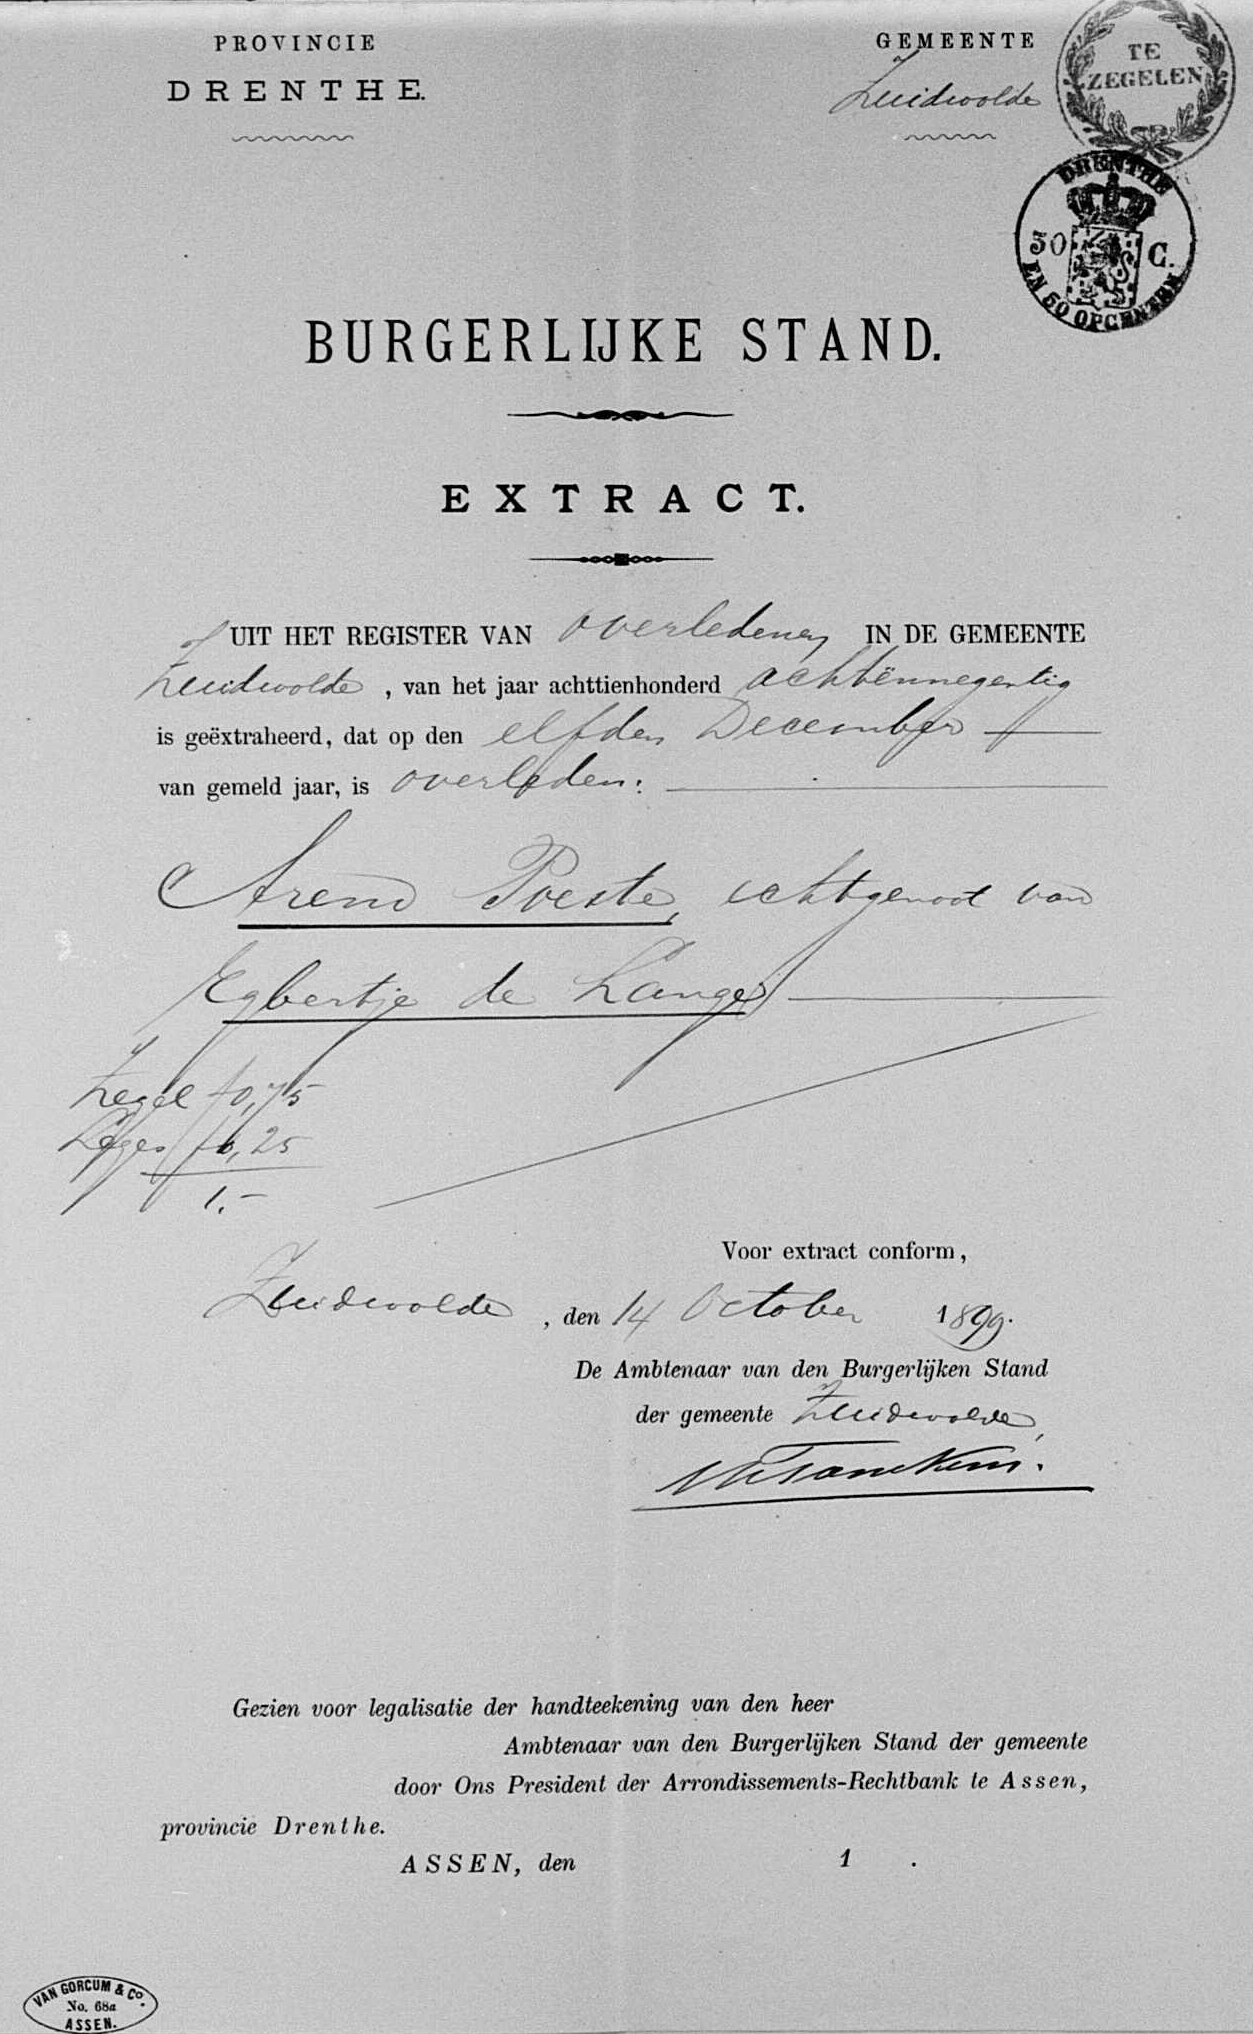 PROVINCIE
DRENTHE.
GEMEENTE
Zuidwolde
TE
ZEGELEN
DRENTHE
50 C.
EN 50 OPCENTEN
BURGERLIJKE STAND.
EXTRACT.
UIT HET REGISTER VAN overledenen IN DE GEMEENTE
Zuidwolde, van het jaar achttienhonderd achtënnegentig
is geëxtraheerd, dat op den elfden December
van gemeld jaar, is overleden:
Arend Poeste, echtgenoot van
Egbertje de Lange
Zegel f 0,75
Leges f 0,25
1.-
Voor extract conform,
Zuidwolde, den 14 October 1899.
De Ambtenaar van den Burgerlijken Stand
der gemeente Zuidwolde,
Gezien voor legalisatie der handteekening van den heer
Ambtenaar van den Burgerlijken Stand der gemeente
door Ons President der Arrondissements-Rechtbank te Assen,
provincie Drenthe.
ASSEN, den 1 .
VAN GORCUM & Co.
No. 68a
ASSEN.